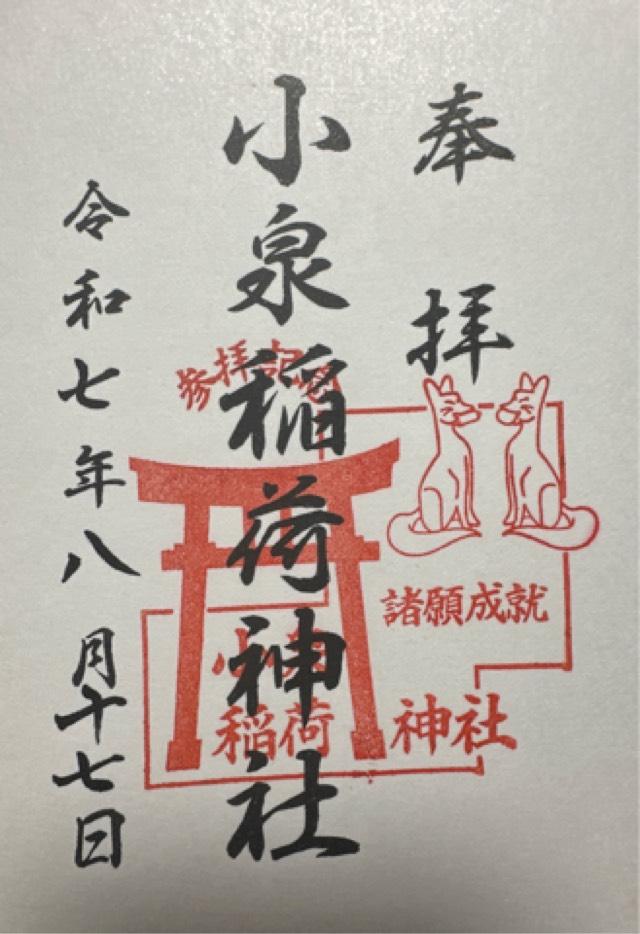 奉拝
小泉稲荷神社
令和七年八月十七日
参拝記念
諸願成就
小泉
稲荷神社